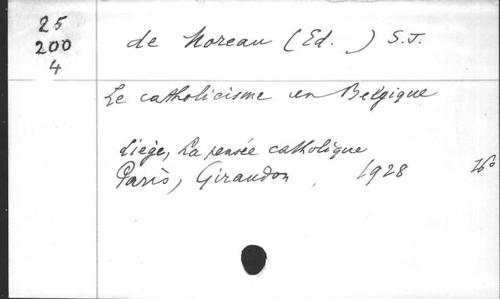 25
200
4
de Moreau (Ed. ) S.J.
Le catholicisme en Belgique
Liège, La pensée catholique
Paris, Giraudon, 1928 16°